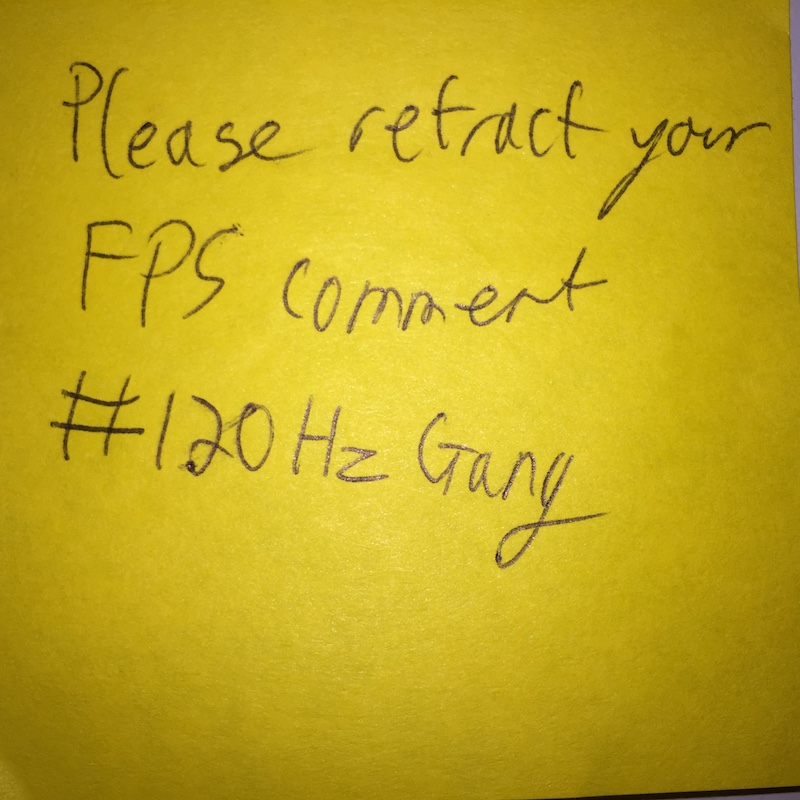 Please retract your
FPS comment
#120Hz Gang